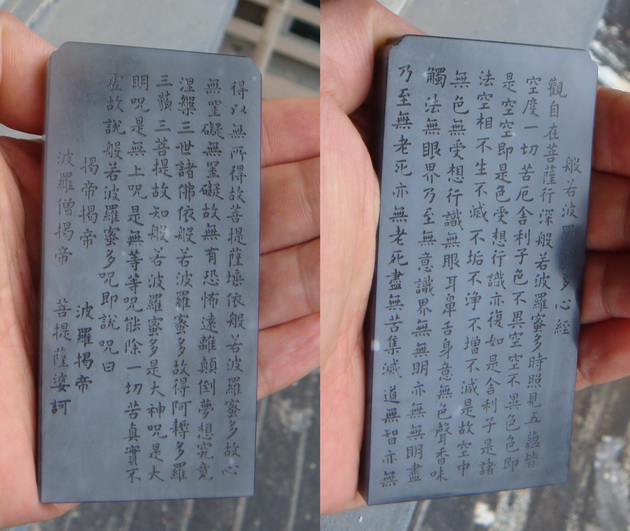 般若波羅多心經
觀自在菩薩行深般若波羅蜜多時照見五蘊皆
空度一切苦厄舍利子色不異空空不異色色即
是空空即是色受想行識亦復如是舍利子是諸
法空相不生不滅不垢不淨不增不減是故空中
無色無受想行識無眼耳鼻舌身意無色聲香味
觸法無眼界乃至無意識界無無明亦無無明盡
乃至無老死亦無老死盡無苦集滅道無智亦無
得以無所得故菩提薩埵依般若波羅蜜多故心
無罣礙無罣礙故無有恐怖遠離顛倒夢想究竟
涅槃三世諸佛依般若波羅蜜多故得阿耨多羅
三藐三菩提故知般若波羅蜜多是大神呪是大
明呪是無上呪是無等等呪能除一切苦真實不
虛故說般若波羅蜜多呪即說呪曰
揭帝揭帝 波羅揭帝
波羅僧揭帝 菩提薩婆訶